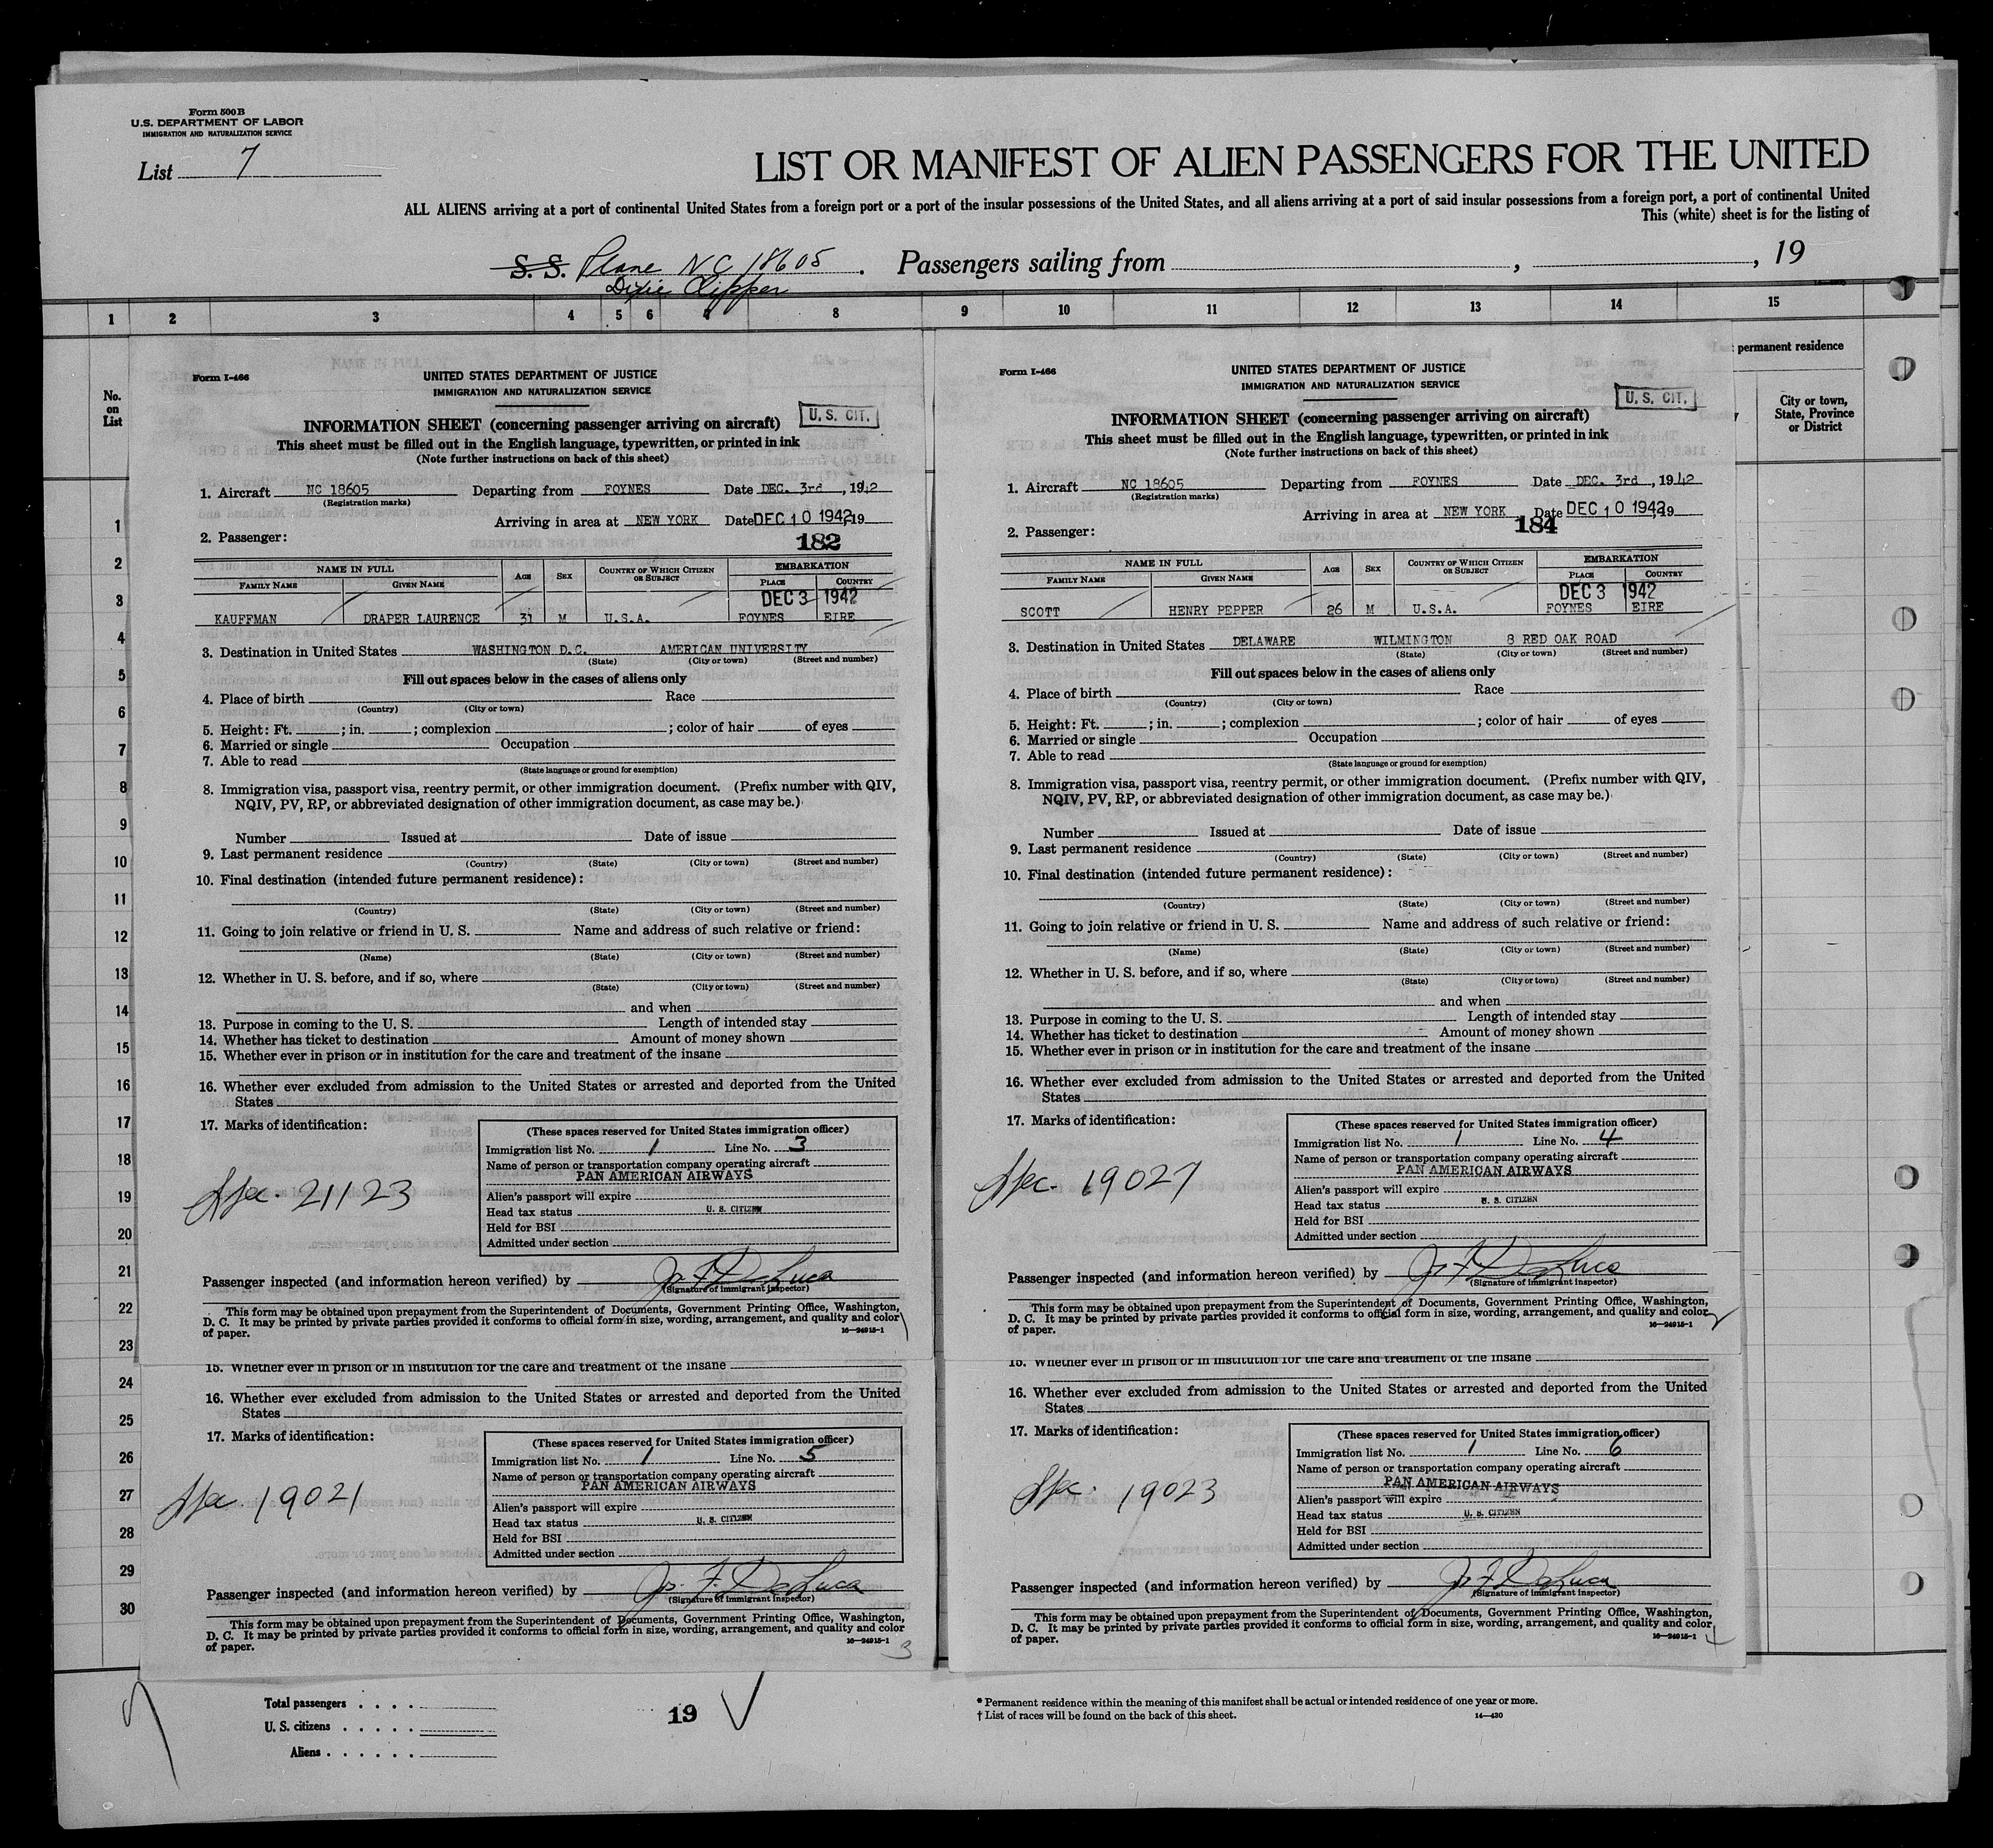 Form 500 B
U.S. DEPARTMENT OF LABOR
IMMIGRATION AND NATURALIZATION SERVICE
List 7
LIST OR MANIFEST OF ALIEN PASSENGERS FOR THE UNITED
ALL ALIENS arriving at a port of continental United States from a foreign port or a port of the insular possessions of the United States, and all aliens arriving at a port of said insular possessions from a foreign port, a port of continental United
This (white) sheet is for the listing of
S. S. Plane NC 18605 . Passengers sailing from , , 19
Dixie Clipper
1 2 3 4 5 6 8 9 10 11 12 13 14 15
No. on List
permanent residence
City or town, State, Province or District
1
2
3
4
5
6
7
8
9
10
11
12
13
14
15
16
17
18
19
20
21
22
23
24
25
26
27
28
29
30
Form I-466
UNITED STATES DEPARTMENT OF JUSTICE
IMMIGRATION AND NATURALIZATION SERVICE
U. S. CIT.
INFORMATION SHEET (concerning passenger arriving on aircraft)
This sheet must be filled out in the English language, typewritten, or printed in ink
(Note further instructions on back of this sheet)
1. Aircraft NC 18605 Departing from FOYNES Date DEC. 3rd , 1942
(Registration marks)
Arriving in area at NEW YORK Date DEC 10 1942, 19
2. Passenger: 182
NAME IN FULL AGE SEX COUNTRY OF WHICH CITIZEN OR SUBJECT EMBARKATION
FAMILY NAME GIVEN NAME PLACE COUNTRY
DEC 3 1942
KAUFFMAN DRAPER LAURENCE 31 M U.S.A. FOYNES EIRE
3. Destination in United States WASHINGTON D.C. AMERICAN UNIVERSITY
(State) (City or town) (Street and number)
Fill out spaces below in the cases of aliens only
4. Place of birth Race
(Country) (City or town)
5. Height: Ft. ; in. ; complexion ; color of hair of eyes
6. Married or single Occupation
7. Able to read
(State language or ground for exemption)
8. Immigration visa, passport visa, reentry permit, or other immigration document. (Prefix number with QIV,
NQIV, PV, RP, or abbreviated designation of other immigration document, as case may be.)
Number Issued at Date of issue
9. Last permanent residence
(Country) (State) (City or town) (Street and number)
10. Final destination (intended future permanent residence):
(Country) (State) (City or town) (Street and number)
11. Going to join relative or friend in U. S. Name and address of such relative or friend:
(Name) (State) (City or town) (Street and number)
12. Whether in U. S. before, and if so, where
(State) (City or town) (Street and number)
and when
13. Purpose in coming to the U. S. Length of intended stay
14. Whether has ticket to destination Amount of money shown
15. Whether ever in prison or in institution for the care and treatment of the insane
16. Whether ever excluded from admission to the United States or arrested and deported from the United
States
17. Marks of identification:
(These spaces reserved for United States immigration officer)
Immigration list No. 1 Line No. 3
Name of person or transportation company operating aircraft
PAN AMERICAN AIRWAYS
Alien's passport will expire
Head tax status U. S. CITIZEN
Held for BSI
Admitted under section
21123
Passenger inspected (and information hereon verified) by Jos. F. DeLuca
(Signature of immigrant inspector)
This form may be obtained upon prepayment from the Superintendent of Documents, Government Printing Office, Washington,
D. C. It may be printed by private parties provided it conforms to official form in size, wording, arrangement, and quality and color
of paper. 16—24915-1
Form I-466
UNITED STATES DEPARTMENT OF JUSTICE
IMMIGRATION AND NATURALIZATION SERVICE
U. S. CIT.
INFORMATION SHEET (concerning passenger arriving on aircraft)
This sheet must be filled out in the English language, typewritten, or printed in ink
(Note further instructions on back of this sheet)
1. Aircraft NC 18605 Departing from FOYNES Date DEC. 3rd , 1942
(Registration marks)
Arriving in area at NEW YORK Date DEC 10 1942, 19
2. Passenger: 184
NAME IN FULL AGE SEX COUNTRY OF WHICH CITIZEN OR SUBJECT EMBARKATION
FAMILY NAME GIVEN NAME PLACE COUNTRY
DEC 3 1942
SCOTT HENRY PEPPER 26 M U.S.A. FOYNES EIRE
3. Destination in United States DELAWARE WILMINGTON 8 RED OAK ROAD
(State) (City or town) (Street and number)
Fill out spaces below in the cases of aliens only
4. Place of birth Race
(Country) (City or town)
5. Height: Ft. ; in. ; complexion ; color of hair of eyes
6. Married or single Occupation
7. Able to read
(State language or ground for exemption)
8. Immigration visa, passport visa, reentry permit, or other immigration document. (Prefix number with QIV,
NQIV, PV, RP, or abbreviated designation of other immigration document, as case may be.)
Number Issued at Date of issue
9. Last permanent residence
(Country) (State) (City or town) (Street and number)
10. Final destination (intended future permanent residence):
(Country) (State) (City or town) (Street and number)
11. Going to join relative or friend in U. S. Name and address of such relative or friend:
(Name) (State) (City or town) (Street and number)
12. Whether in U. S. before, and if so, where
(State) (City or town) (Street and number)
and when
13. Purpose in coming to the U. S. Length of intended stay
14. Whether has ticket to destination Amount of money shown
15. Whether ever in prison or in institution for the care and treatment of the insane
16. Whether ever excluded from admission to the United States or arrested and deported from the United
States
17. Marks of identification:
(These spaces reserved for United States immigration officer)
Immigration list No. 1 Line No. 4
Name of person or transportation company operating aircraft
PAN AMERICAN AIRWAYS
Alien's passport will expire
Head tax status U. S. CITIZEN
Held for BSI
Admitted under section
19027
Passenger inspected (and information hereon verified) by Jos. F. DeLuca
(Signature of immigrant inspector)
This form may be obtained upon prepayment from the Superintendent of Documents, Government Printing Office, Washington,
D. C. It may be printed by private parties provided it conforms to official form in size, wording, arrangement, and quality and color
of paper. 16—24915-1
15. Whether ever in prison or in institution for the care and treatment of the insane
16. Whether ever excluded from admission to the United States or arrested and deported from the United
States
17. Marks of identification:
(These spaces reserved for United States immigration officer)
Immigration list No. 1 Line No. 5
Name of person or transportation company operating aircraft
PAN AMERICAN AIRWAYS
Alien's passport will expire
Head tax status U. S. CITIZEN
Held for BSI
Admitted under section
19021
Passenger inspected (and information hereon verified) by Jos. F. DeLuca
(Signature of immigrant inspector)
This form may be obtained upon prepayment from the Superintendent of Documents, Government Printing Office, Washington,
D. C. It may be printed by private parties provided it conforms to official form in size, wording, arrangement, and quality and color
of paper. 16—24915-1
3
15. Whether ever in prison or in institution for the care and treatment of the insane
16. Whether ever excluded from admission to the United States or arrested and deported from the United
States
17. Marks of identification:
(These spaces reserved for United States immigration officer)
Immigration list No. 1 Line No. 6
Name of person or transportation company operating aircraft
PAN AMERICAN AIRWAYS
Alien's passport will expire
Head tax status U. S. CITIZEN
Held for BSI
Admitted under section
19023
Passenger inspected (and information hereon verified) by Jos. F. DeLuca
(Signature of immigrant inspector)
This form may be obtained upon prepayment from the Superintendent of Documents, Government Printing Office, Washington,
D. C. It may be printed by private parties provided it conforms to official form in size, wording, arrangement, and quality and color
of paper. 16—24915-1
4
Total passengers . . . .
U. S. citizens . . . . .
Aliens . . . . . .
19
* Permanent residence within the meaning of this manifest shall be actual or intended residence of one year or more.
† List of races will be found on the back of this sheet. 14—430